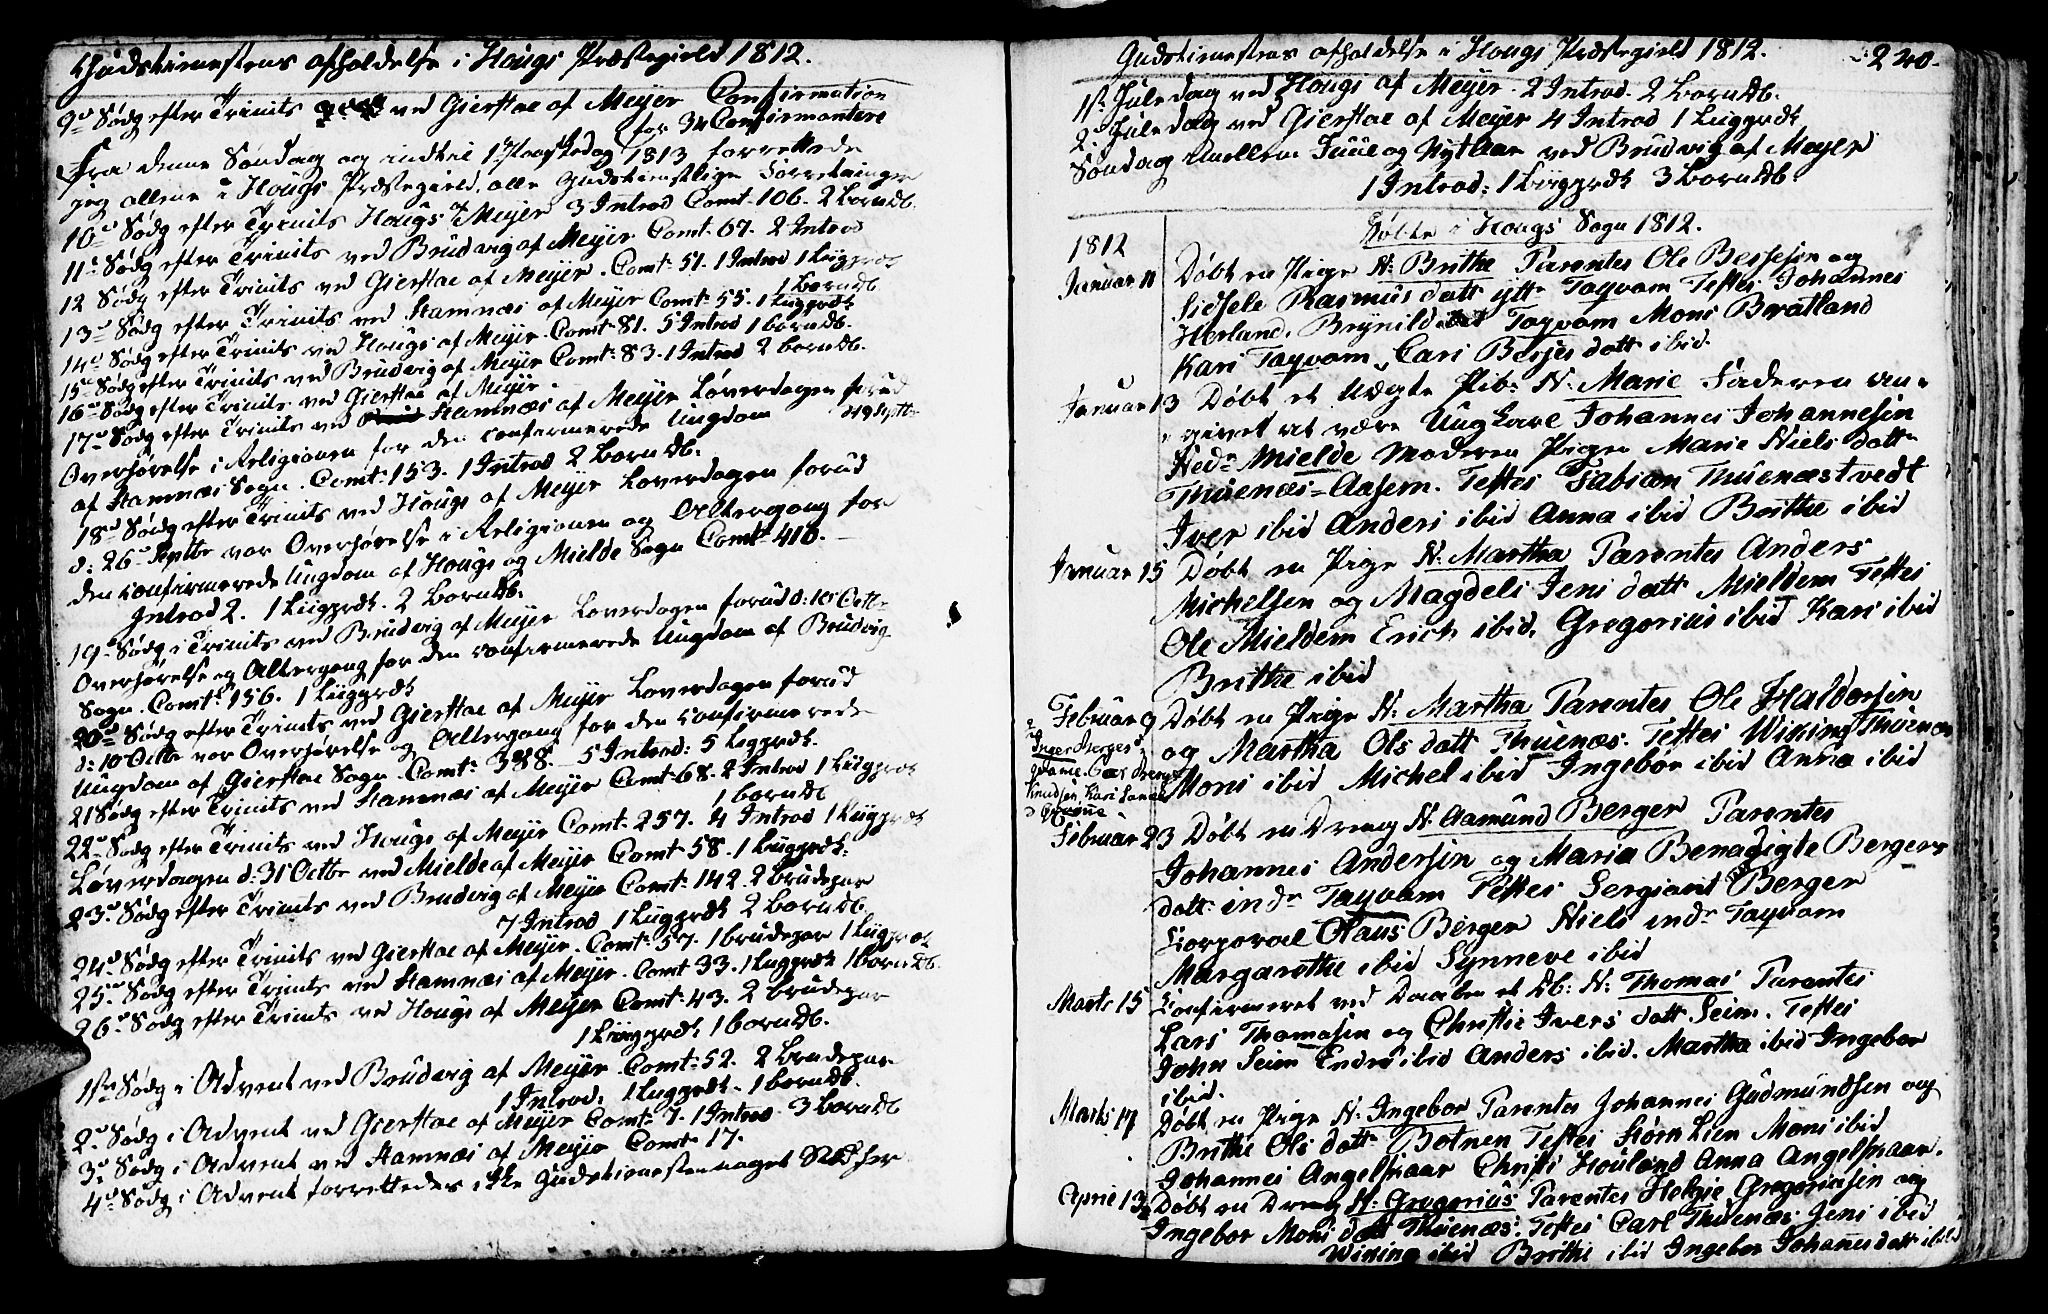 Gudstienestens afholdelse i Hougs Præstegield 1812.
9de Södg efter Trinits ved Gierstae af Meyer Confirmation
for 34 Confirmantere
Fra denne Söndag og indtil 1813 forrettede
jeg allene i Hougs Præstegield, alle Gudstienstlige Forretninger
10de Södg efter Trinits Hougs af Meyer 3 Introd Comt. 106. 2 Börn Db.
11te Södg efter Trinits ved Brudvig af Meyer Comt. 67. 2 Introd
12 Södg efter Trinits ved Gierstae af Meyer. Comt. 51. 1 Introd 1 Liigprdk
1 Börn Db
13de Södg efter Trinits ved Hamnæs af Meyer Comt. 55. 1 Liigprdk
14de Södg efter Trinits ved Hougs af Meyer. Comt. 81. 5 Introd 1 börn Db.
15de Södg efter Trinits ved Brudvig af Meyer Comt. 83. 1 Introd 2 börn Db.
16de Södg efter Trinits ved Gierstae af Meyer.
17de Södg efter Trinits ved Hamnæs af Meyer Löverdagen forud
Overhörelse i Religionen for den confirmerede Ungdom
af Hamnæs Sogn. Comt. 153. 1 Introd 2 Börn Db.
18de Södg efter Trinits ved Hougs af Meyer Löverdagen forud
d: 26 Septbr var Overhörelse i Religionen og Altergang for
den confirmerede Ungdom af Hougs og Mielde Sogn Comt. 410.
Introd 2. 1 Liigprdk. 2 Börn Db.
19de Södg i Trinits ved Brudvig af Meyer Löverdagen forud d: 10 Octb.
Overhörelse og Altergang for den confirmerede Ungdom af Brudvig
Sogn. Comt. 156. 1 Liigprdk
20de Södg efter Trinits ved Gierstae af Meyer Löverdagen forud
d: 10 Octbr var Overhörelse og Altergang for den confirmerede
Ungdom af Gierstae Sogn. Comt. 388. 5 Introd: 5 Ligprdk.
21 Södg efter Trinits ved Hamnæs af Meyer Comt. 68. 2 Introd 1 Liigprdk
1 börn Db
22de Södg efter Trinits ved Hougs af Meyer Comt. 257. 4 Introd 1 Liigprdk
Löverdagen d: 31 Octbr ved Mielde af Meyer Comt. 58. 1 Liigprdk:
23de Södg efter Trinits ved Brudvig af Meyer Comt. 142. 2 brudepar
7 Introd 1 Liigprdk 2 Börn Db.
24de Södg efter Trinits ved Gierstae af Meyer. Comt. 57. 1 brudepar 1 Liigprdk
25de Södg efter Trinits ved Hamnæs af Meyer. Comt 33. 1 Liigprdk 1 börn Db.
26de Södg efter Trinits ved Hougs af Meyer Comt. 43. 2 brudepar
1 Liigprdk 1 börn Db.
1ste Södg i Advent ved Brudvig af Meyer. Comt. 52. 2 Brudepar
1 Introd: 1 Liigprdk. 1 börn Db.
2de Södg i Advent ved Gierstae af Meyer Comt. 7. 1 Introd. 3 Börn Db
3de Södg i Advent ved Hamnæs af Meyer Comt. 17.
4de Södg i Advent forrettedes ikke Gudstienesten noget Sted her
Gudstienestens afholdelse i Hougs Præstegield 1812.
240
1ste Juledag ved Hougs af Meyer. 2 Introd. 2 börn Db.
2den Juledag ved Gierstae af Meyer 4 Introd 1 Liigprdk
Söndag imellem Juul og Nytaar ved Brudvig af Meyer
1 Introd: 1 Liigprdk 3 börn Db.
Döbte i Hougs Sogn 1812.
1812
Januar 11 Döbt en Pige N: Brithe Parentes Ole Bersesen og
Sidsele Rasmus datt ytr Tayvam Testes Johannes
Herland, Brynild Tayvam Moni Bratland
Kari Tayvam, Cari Berjes datt ibid.
Januar 13 Döbt et Uægte Pib: N: Marie Faderen an-
givet at være Ungkarl Johannes Johannesen
Nedr Mielde Moderen Pigen Marie Niels datr
Thuenæs-Aasem. Testes Fabian Thuenæstvedt
Iver ibid Anders ibid Anna ibid Brithe ibid
Januar 15 Döbt en Pige N: Martha Parentes Anders
Michelsen og Magdeli Jens datt Mieldem Testes
Ole Mieldem Erich ibid, Gregorius ibid Kari ibid
Brithe ibid
Februar 9 Döbt en Pige N: Martha Parentes Ole Haldorsen
og Martha Ols datt Thuenæs. Testes Wiking Thuenæs
Moni ibid Michel ibid Ingebor ibid Anna ibid
Februar 23 Döbt en Dreng N: Aamund Berger Parentes
Johannes Andersen og Maria Benadigte Bergers
datt: indr Tayvam Testes Sergiant Berger
Korporal Olaus Berger Niels indr Tayvam
Margarethe ibid Synneve ibid
Marts 15 Confirmeret ved Daaben et Db: N: Thomas Parentes
Lars Thomasen og Christie Ivers datt. Seim. Testes
John Seim Endre ibid Anders ibid. Martha ibid Ingebor
ibid.
Marts 17 Döbt en Pige N: Ingebor Parentes Johannes Gudmundsen og
Brithe Ols datt. Botnen Testes Störk Lien Moni ibid
Johannes Angelskaar Christi Houland Anna Angelskaar.
Aprie 13 Döbt en Dreng N: Gregorius Parentes Helgie Gregoriusen og
Ingebor Moni datt Thuenæs. Testes Carl Thuenæs Jens ibid
Wiking ibid Brithe ibid Ingebor Johannes datt ibid